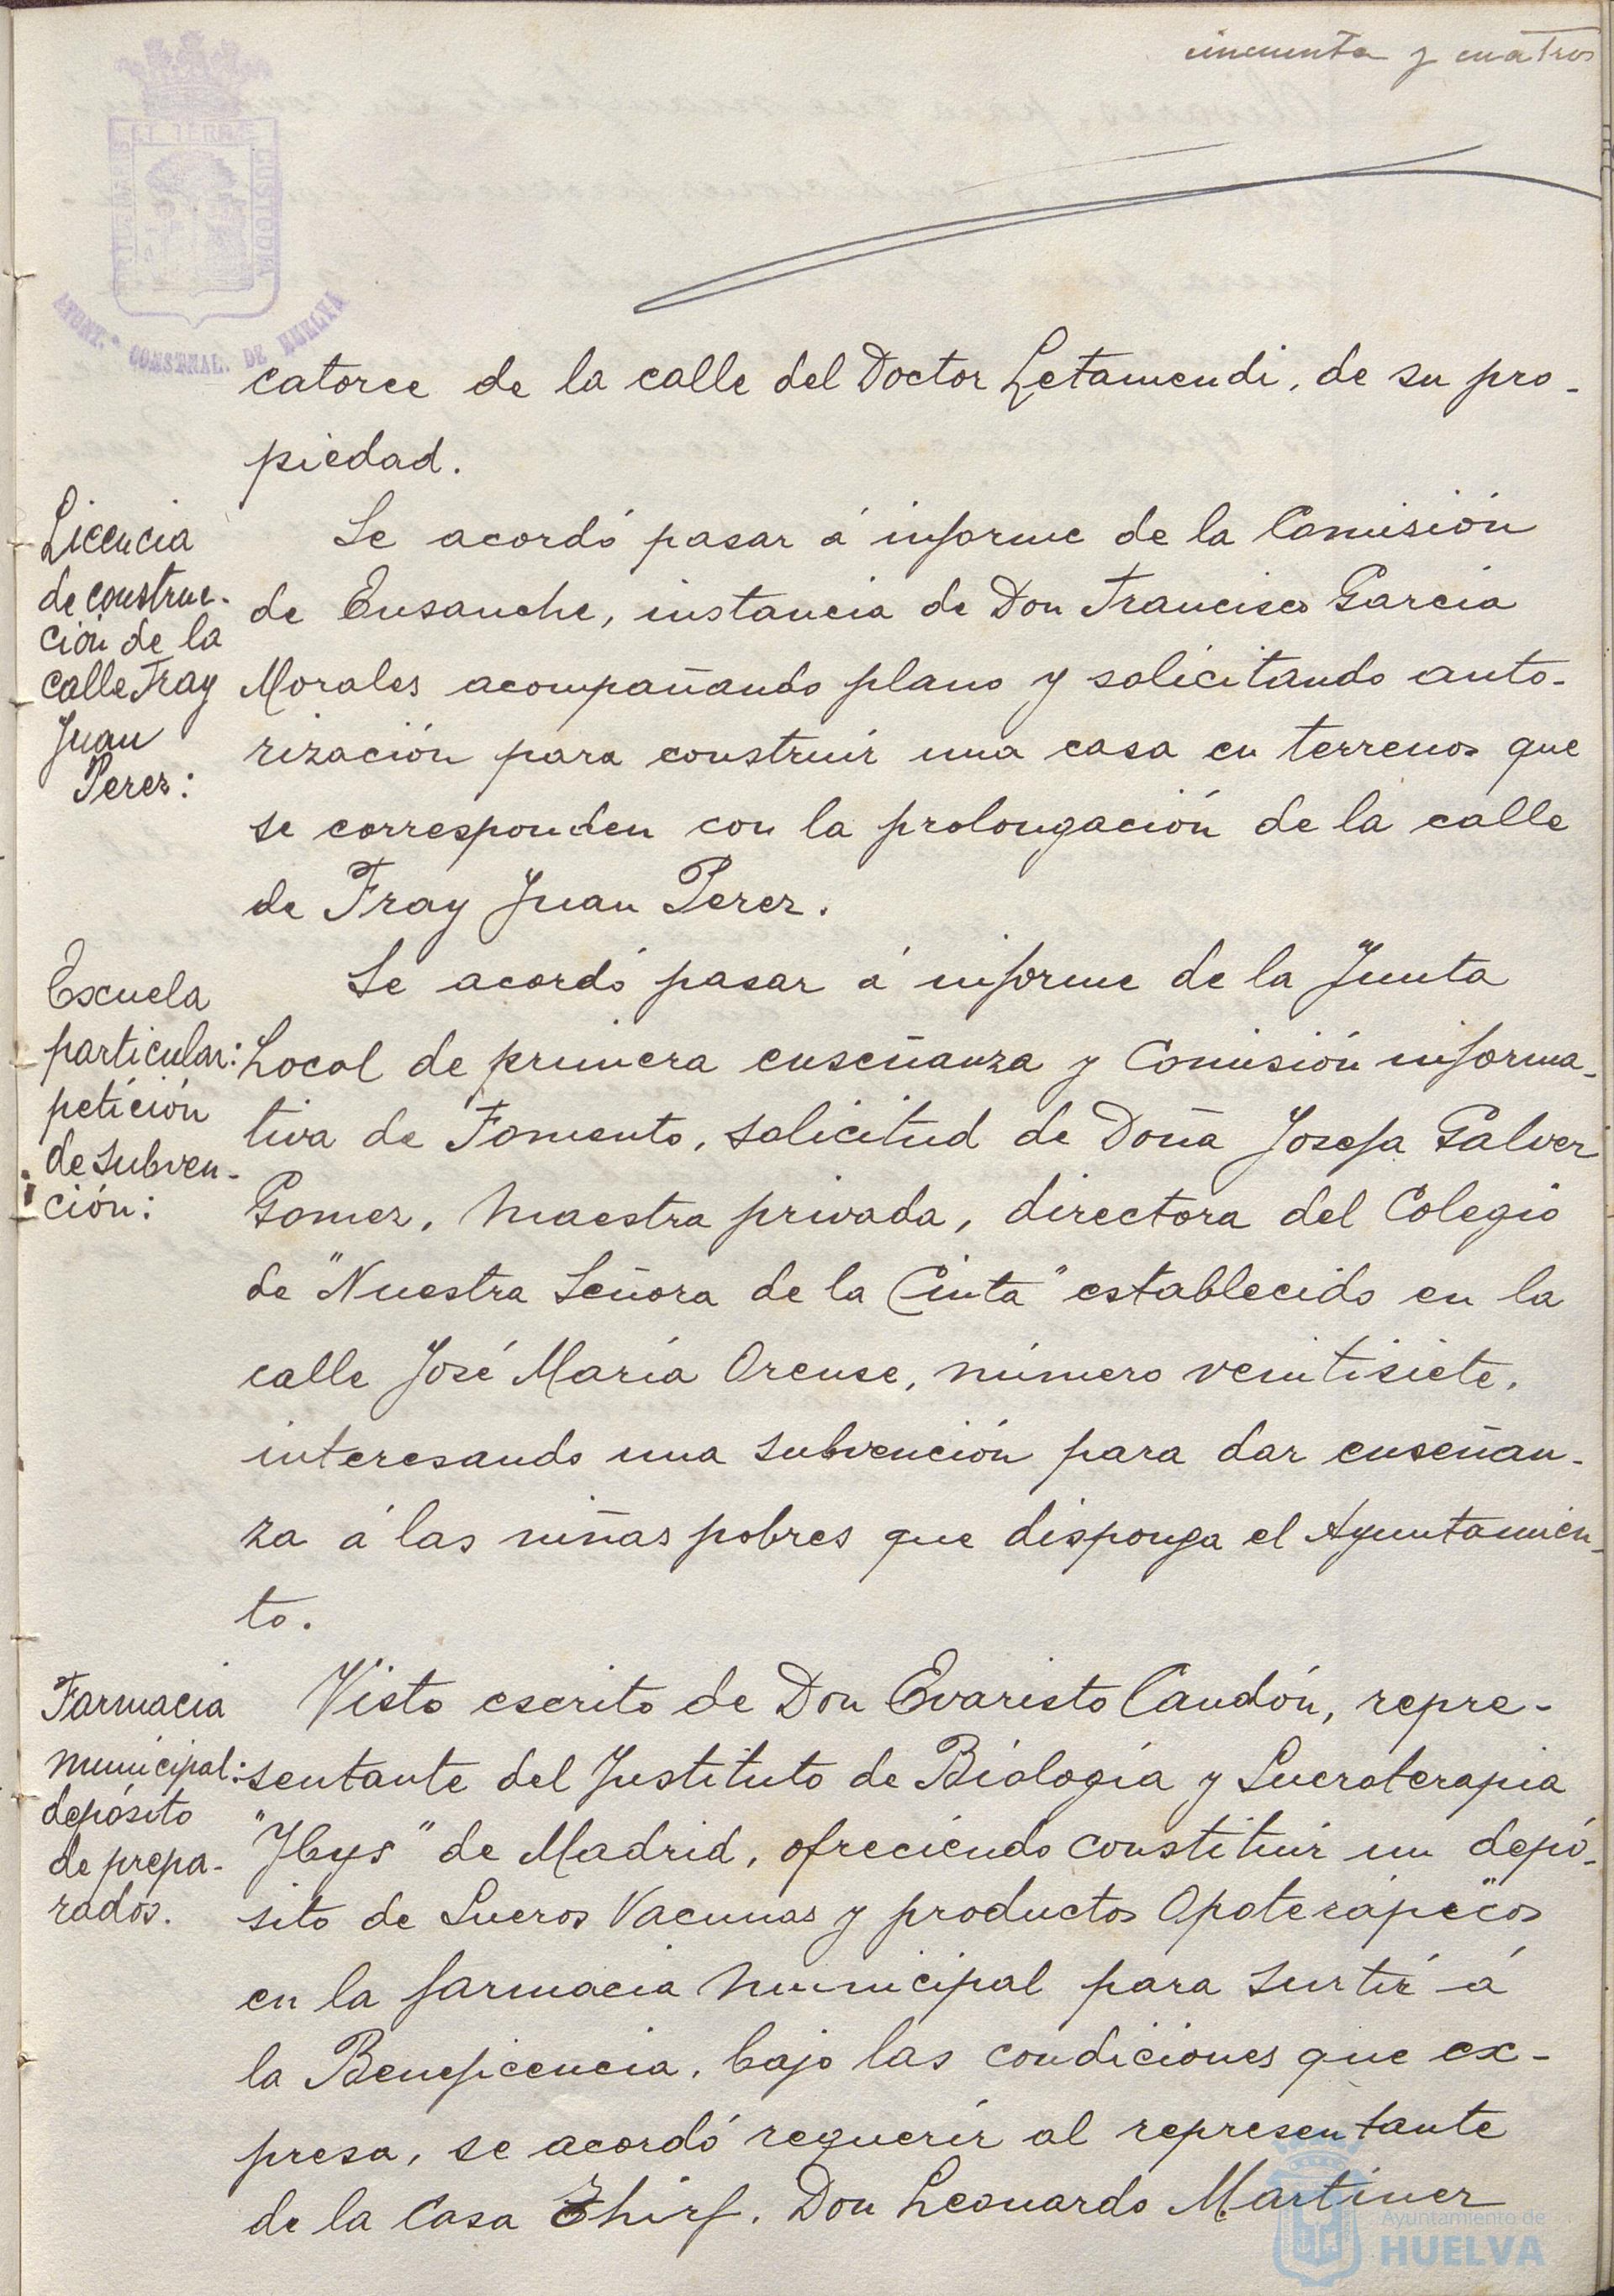 cincuenta y cuatro
PORTUS MARIS ET TERRAE CUSTODIA
AYUNT.º CONSTNAL. DE HUELVA
catorce de la calle del Doctor Letamendi, de su pro-
piedad.
Licencia
de construc-
ción de la
calle Fray
Juan
Perez:
Se acordó pasar á informe de la Comisión
de Ensanche, instancia de Don Francisco Garcia
Morales acompañando plano y solicitando auto-
rización para construir una casa en terrenos que
se corresponden con la prolongación de la calle
de Fray Juan Perez.
Escuela
particular:
petición
de subven-
ción:
Se acordó pasar á informe de la Junta
Local de primera enseñanza y Comisión informa-
tiva de Fomento, solicitud de Doña Josefa Galvez
Gomez, Maestra privada, directora del Colegio
de "Nuestra Señora de la Cinta" establecido en la
calle José María Orense, número veintisiete,
interesando una subvención para dar enseñan-
za á las niñas pobres que disponga el Ayuntamien-
to.
Farmacia
municipal:
depósito
de prepa-
rados.
Visto escrito de Don Evaristo Candón, repre-
sentante del Instituto de Biología y Sueroterapia
"Ibys" de Madrid, ofreciendo constituir un depó-
sito de Sueros Vacunas y productos Opoterápicos
en la farmacia Municipal para surtir á
la Beneficencia, bajo las condiciones que ex-
presa, se acordó requerir al representante
de la Casa Thirf, Don Leonardo Martinez
Ayuntamiento de
HUELVA